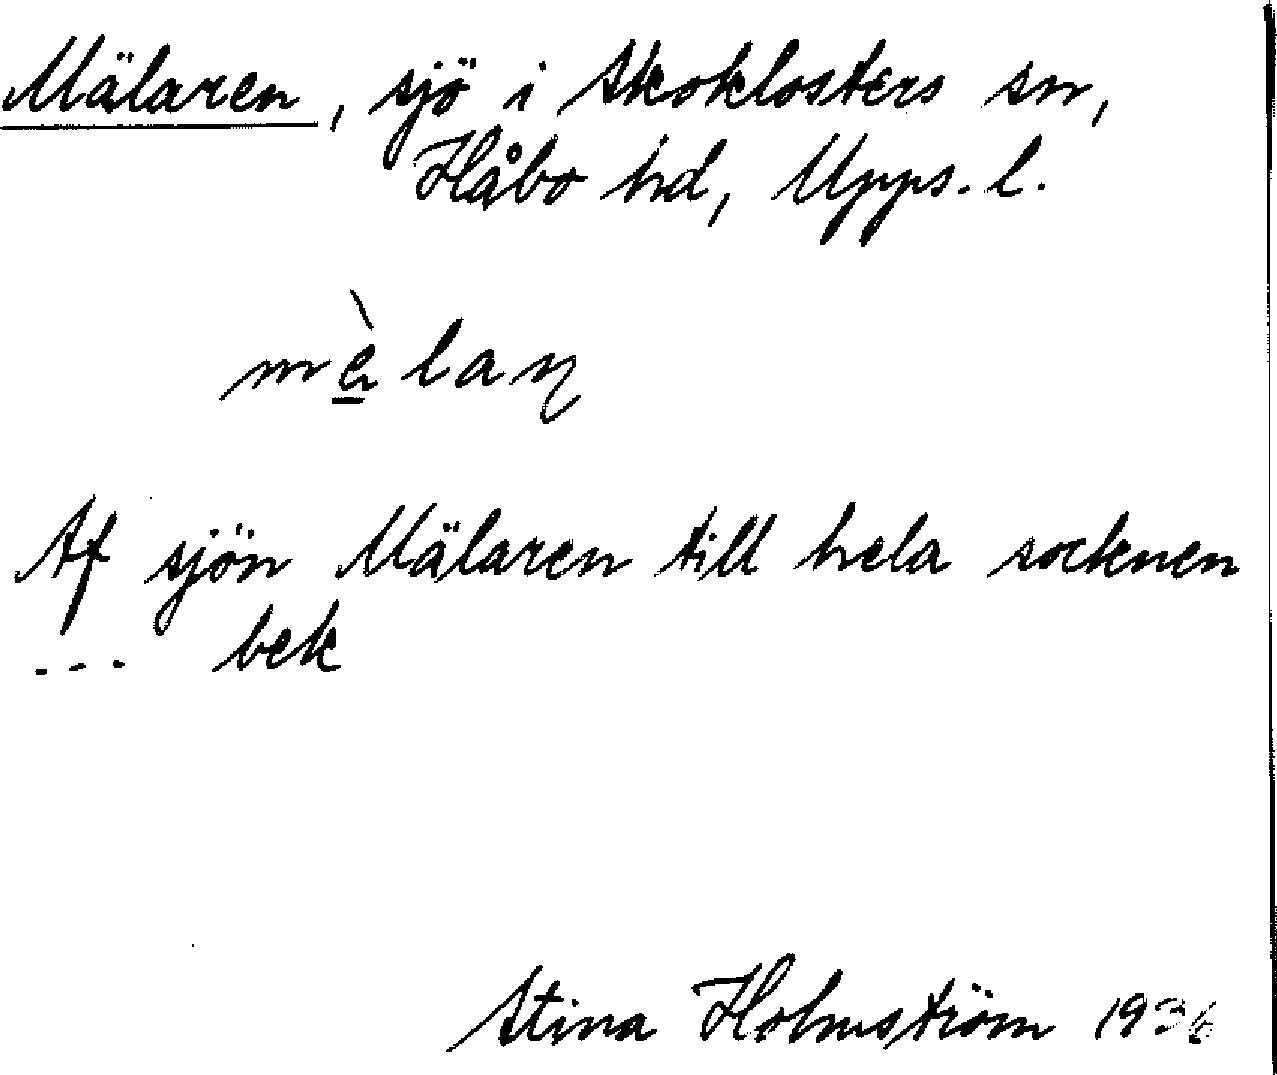 Mälaren, sjö i Skoklosters sn,
Håbo hd, Upps. l.
Af sjön Mälaren till hela socknen
--- bek
Stina Holmström 1936